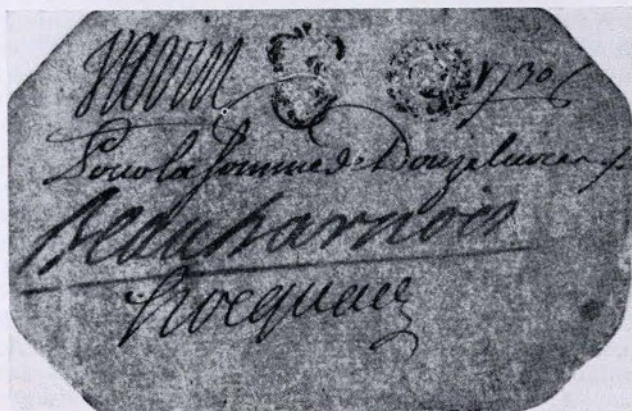 Varin 1730
Pour la Somme de Douze livres
Beauharnois
Hocquart